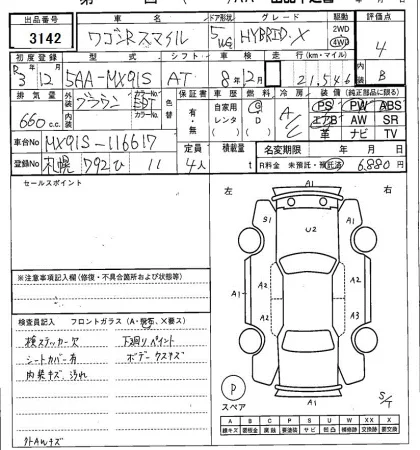 出品番号 車名 ドア形状 グレード 駆動 評価点
3142 ワゴンRスマイル 5 WG HYBRID X 2WD 4WD 4
初度登録 型式 シフト 車検 走行(km・マイル) 内装
R3年12月 5AA-MX91S AT 8年12月 21,546 B
排気量 外装 カラー 色替 保証書 車歴 燃料 冷房 装備(純正部品に限る)
660cc ブラウン 有・無 自家用 レンタ G D A/C PS PW ABS
エアB AW SR
革 ナビ TV
車台No MX91S-116617 定員 積載量 名変期限 年 月 日
登録No 札幌 792ひ 11 4人 t R料金 未預託・預託済 6,880円
セールスポイント
左 右
A1
S1 A1
U2
A2
A1 A1 A3
A1
A1
※注意事項記入欄(修復・不具合箇所および状態等)
検査員記入 フロントガラス(A・飛石、X要ス)
検ステッカー欠 下廻りペイント
シートカバー有 ボデークスキズ
内装キズ、汚れ
外AWキズ
P
スペア
S/T
A B C P S U W X XX X
線キズ 要板金 腐蝕 要塗装 サビ 凹凸 補修跡 交換跡 要交換